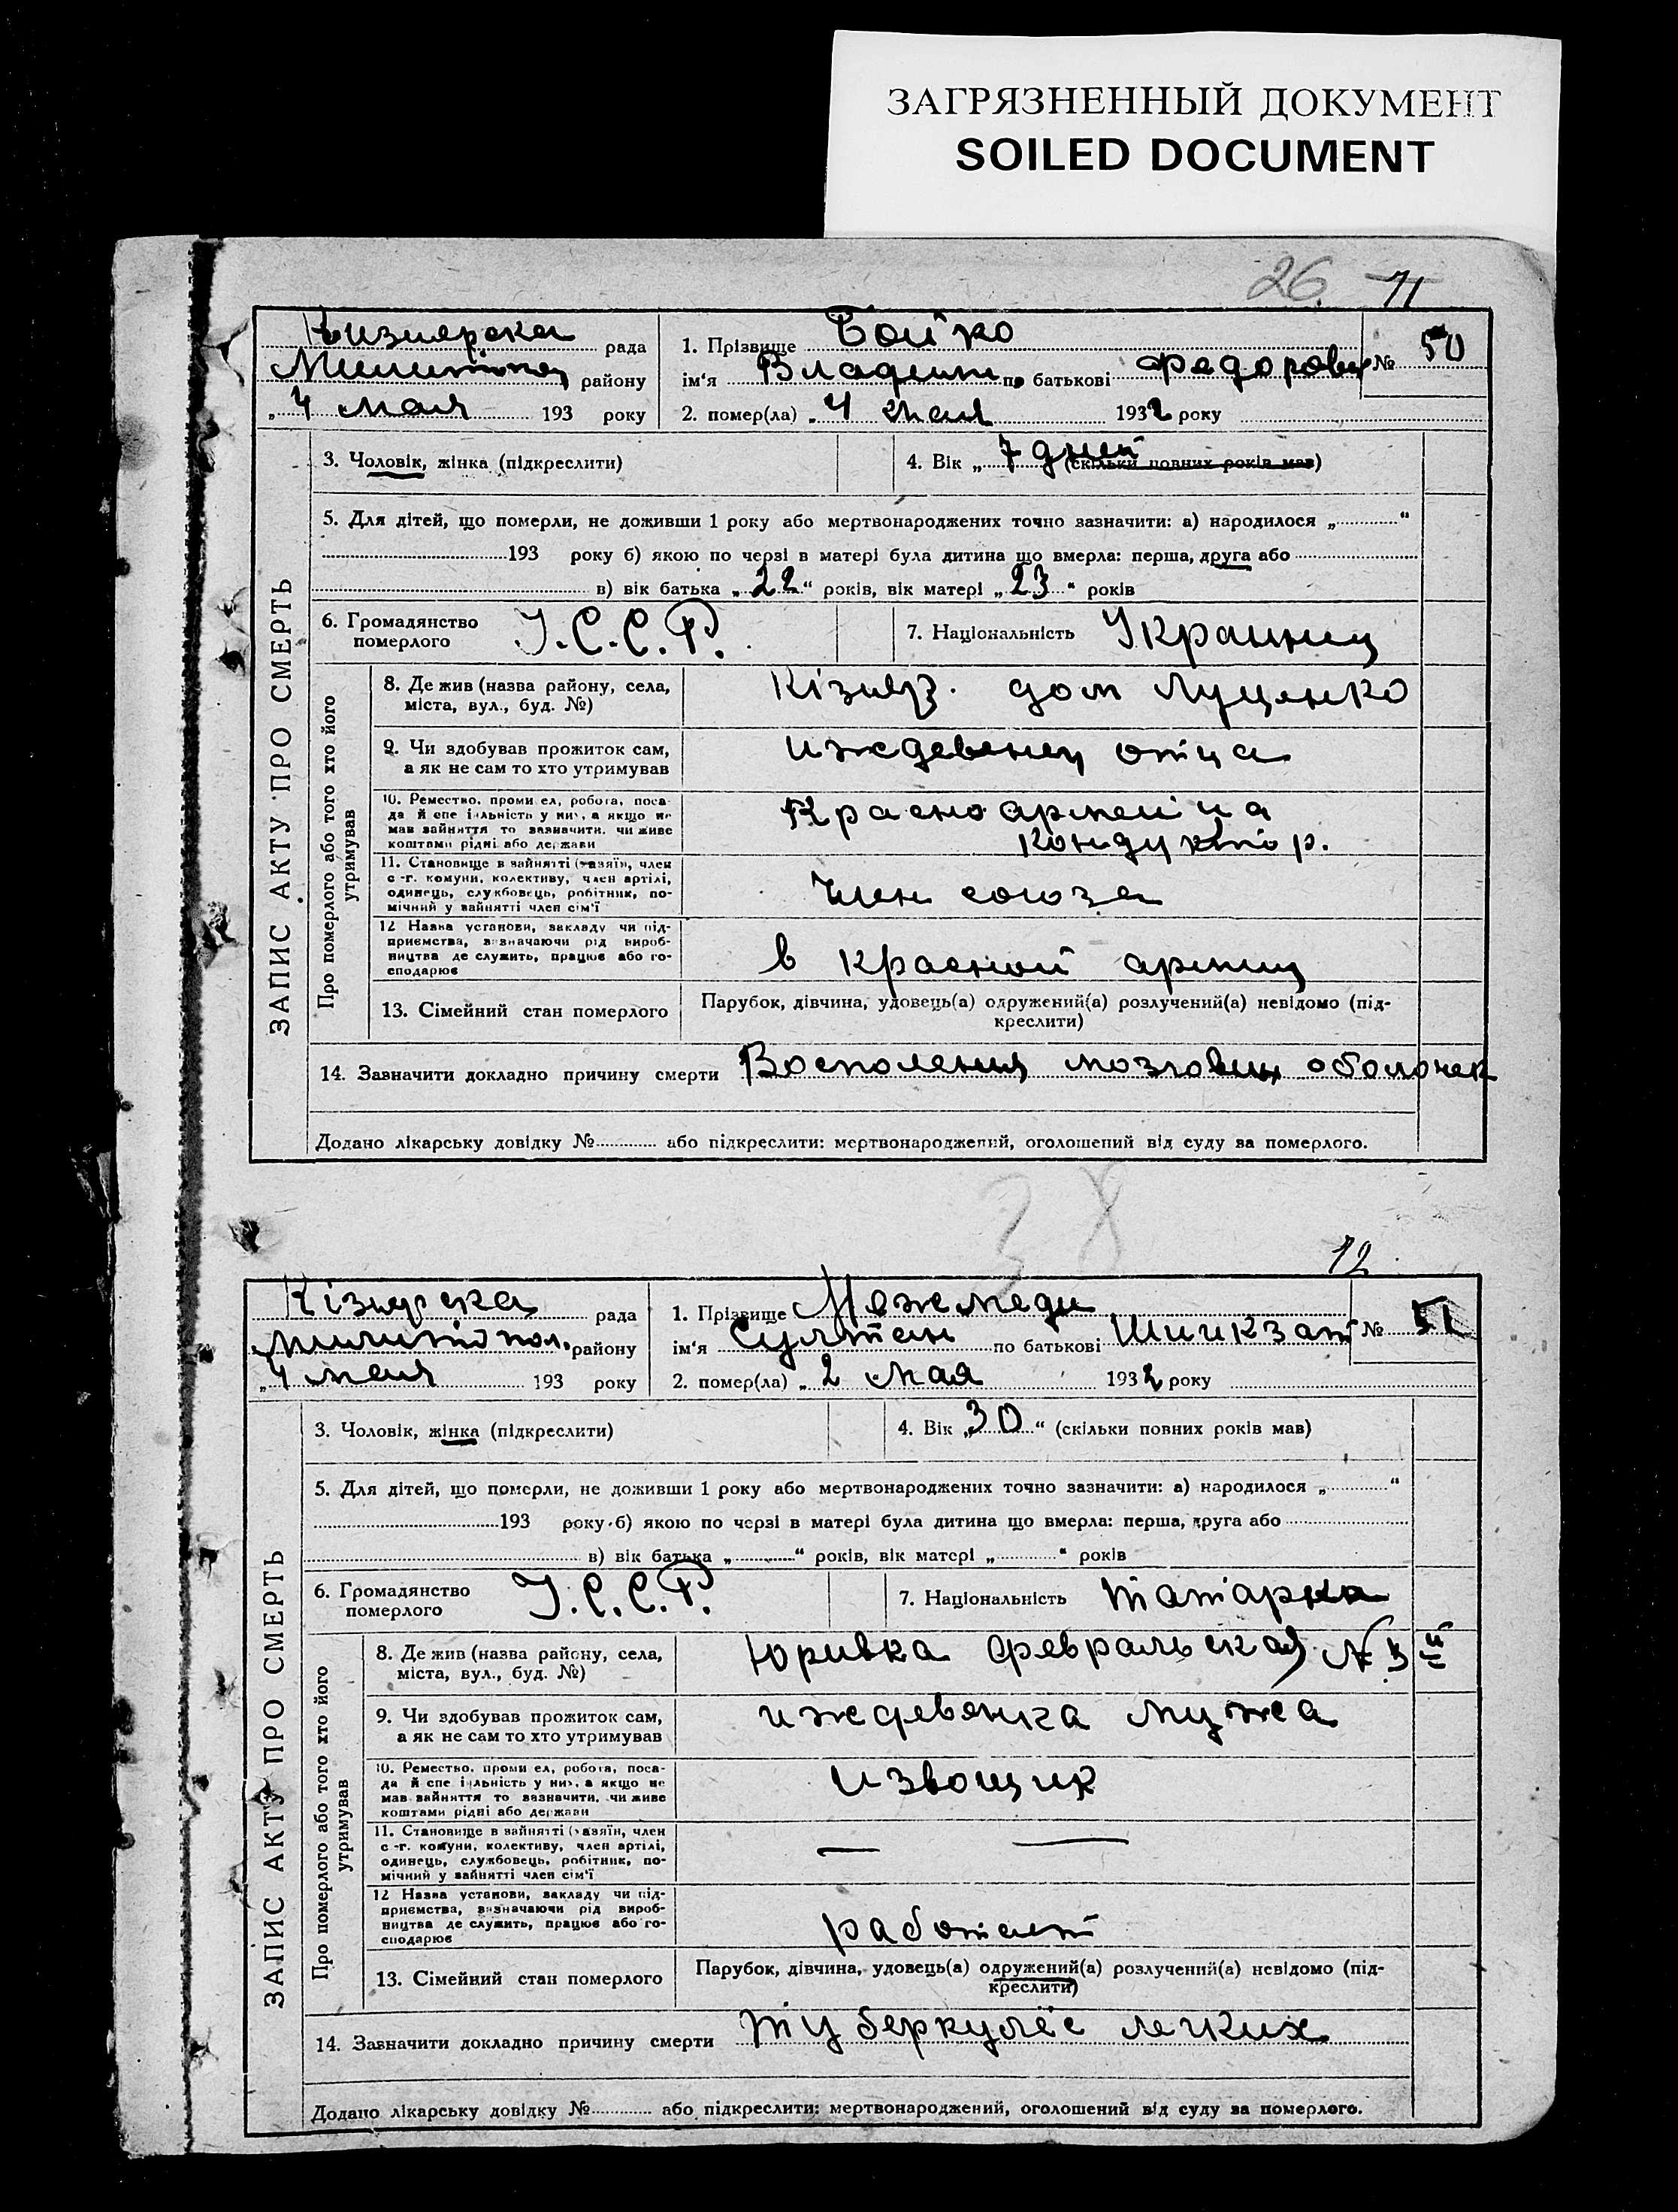 ЗАГРЯЗНЕННЫЙ ДОКУМЕНТ
SOILED DOCUMENT
26 11
Кизиярска рада
Милитопол району
„ 4 мая 193 року
1. Прізвище Бойко
ім'я Владим по батькові Федорович № 50
2. помер(ла) „ 4 мая 1932 року
3. Чоловік, жінка (підкреслити)
4. Вік „ 7 дней (скільки повних років мав)
5. Для дітей, що померли, не доживши 1 року або мертвонароджених точно зазначити: а) народилося „ “
193 року б) якою по черзі в матері була дитина що вмерла: перша, друга або
в) вік батька „ 22 “ років, вік матері „ 23 “ років
6. Громадянство померлого У.С.С.Р.
7. Національність Украинец
ЗАПИС АКТУ ПРО СМЕРТЬ
Про померлого або того хто його утримував
8. Де жив (назва району, села,
міста, вул., буд. №)
Кізияр. дом Луценко
9. Чи здобував прожиток сам,
а як не сам то хто утримував
иждевенец отца
10. Ремество, проми ел, робота, поса-
да й спе і альність у них, а якщо не
мав зайняття то зазначити, чи живе
коштами рідні або держави
Красноармейца
кондуктор.
11. Становище в зайнятті (хазяїн, член
с-г. комуни, колективу, член артілі,
одинець, службовець, робітник, по-
мічний у зайнятті член сім'ї
Член союза
12 Назва установи, закладу чи під-
приємства, визначаючи рід вироб-
ництва де служить, працює або го-
сподарює
в красной армии
13. Сімейний стан померлого
Парубок, дівчина, удовець(а) одружений(а) розлучений(а) невідомо (під-
креслити)
14. Зазначити докладно причину смерти Восполения мозговых оболочек
Додано лікарську довідку № або підкреслити: мертвонароджений, оголошений від суду за померлого.
38
12
Кізиярска рада
милитопол. району
„ 4 мая 193 року
1. Прізвище Межмеди
ім'я Султан по батькові № 51
2. помер(ла) „ 2 мая 1932 року
3. Чоловік, жінка (підкреслити)
4. Вік „ 30 “ (скільки повних років мав)
5. Для дітей, що померли, не доживши 1 року або мертвонароджених точно зазначити: а) народилося „ “
193 року б) якою по черзі в матері була дитина що вмерла: перша, друга або
в) вік батька „ “ років, вік матері „ “ років
6. Громадянство померлого У.С.С.Р.
7. Національність татарка
ЗАПИС АКТУ ПРО СМЕРТЬ
Про померлого або того хто його утримував
8. Де жив (назва району, села,
міста, вул., буд. №)
Юривка февральская № 3
9. Чи здобував прожиток сам,
а як не сам то хто утримував
иждевенка мужа
10. Ремество, проми ел, робота, поса-
да й спе і альність у них, а якщо не
мав зайняття то зазначити, чи живе
коштами рідні або держави
извощик
11. Становище в зайнятті (хазяїн, член
с-г. комуни, колективу, член артілі,
одинець, службовець, робітник, по-
мічний у зайнятті член сім'ї
— —
12 Назва установи, закладу чи під-
приємства, визначаючи рід вироб-
ництва де служить, працює або го-
сподарює
работает
13. Сімейний стан померлого
Парубок, дівчина, удовець(а) одружений(а) розлучений(а) невідомо (під-
креслити)
14. Зазначити докладно причину смерти туберкулёс легких
Додано лікарську довідку № або підкреслити: мертвонароджений, оголошений від суду за померлого.